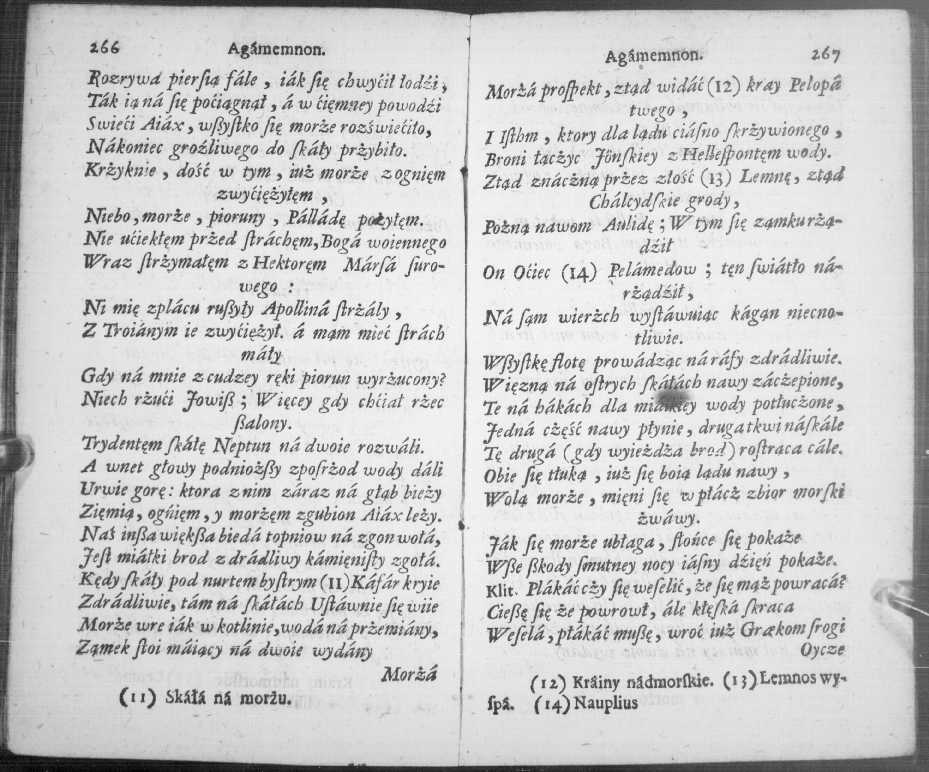 266 Agámemnon.
Rozrywa pierśią fále , iák ſię chwyćił łodźi ,
Ták ią ná ſię poćiągnął , á w ćięmney powodźi
Swieći Aiáx , wßyſtko ſię morże rozświećiło,
Nákoniec groźliwego do ſkáły prżybiło.
Krżyknie , dość w tym , iuż morże z ognięm
zwyćiężyłęm ,
Niebo, morże , pioruny , Pálládę pożyłęm.
Nie ućiekłęm przed ſtráchęm, Bogá woiennego
Wraz ſtrżymałęm z Hektoręm Mársá ſuro-
wego :
Ni mię zplácu rußyły Apolliná ſtrżáły ,
Z Troiánym ie zwyćiężył. á mąm mieć ſtrách
máły
Gdy ná mnie z cudzey ręki piorun wyrżucony?
Niech rżući Jowiß ; Więcey gdy chćiał rżec
ßalony.
Trydentęm ſkáłę Neptun ná dwoie rozwáli.
A wnet głowy podniożßy zpoſrżod wody dáli
Urwie gorę: ktora z nim záraz ná głąb bieży
Zięmią, ogńięm, y morżęm zgubion Aiáx leży.
Nas inßa więkßa biedá topniow ná zgon wołá,
Jeſt miáłki brod z drádliwy kámięniſty zgołá.
Kędy ſkáły pod nurtem byſtrym (11) Káfár kryie
Zdrádliwie, tám ná ſkáłách Uſtáwnie ſię wiie
Morże wre iák w kotlinie, wodá ná przemiány,
Ząmek ſtoi máiący ná dwoie wydány
Morżá
(11) Skáłá ná morżu.
Agámemnon. 267
Morżá proſpekt, ztąd widáć (12) kray Pelopá
twego ,
I Iſthm , ktory dla lądu ciáſno ſkrżywionego ,
Broni łączyc Jönſkiey z Helleſpontęm wody.
Ztąd znáczną przez złość (13) Lemnę, ztąd
Chálcydſkie grody,
Poźną nawom Aulidę ; W tym ſię ząmkurżą-
dźił
On Oćiec (14) Pelámedow ; tęn ſwiátło ná-
rżądźił ,
Ná ſąm wierżch wyſtáwuiąc kágąn niecno-
tliwie.
Wßyſtkę flotę prowádząc ná ráfy zdrádliwie.
Więzną ná oſtrych ſkáłách nawy záczepione,
Te ná hákách dla miáłkiey wody potłuczone,
Jedná część nawy płynie, druga tkwi náſkále
Tę drugá (gdy wyieżdża brod) roſtraca cále.
Obie ſię tłuką , iuż ſię boią lądu nawy ,
Wolą morże , mięni ſię w płácż zbior morſki
żwáwy.
Ják ſię morże ubłaga , ſłońce ſię pokaże
Wße ßkody ſmutney nocy iáſny dźięń pokaże.
Klit. Płákáć cży ſię weſelić, że ſię mąż powracá?
Cießę ſię że powrowł, ále kłęſká ſkraca
Weſelá, płákáć mußę, wroć iuż Grækom ſrogi
Oycze
(12) Kráiny nádmorſkie. (13) Lemnos wy-
ſpá. (14) Nauplius